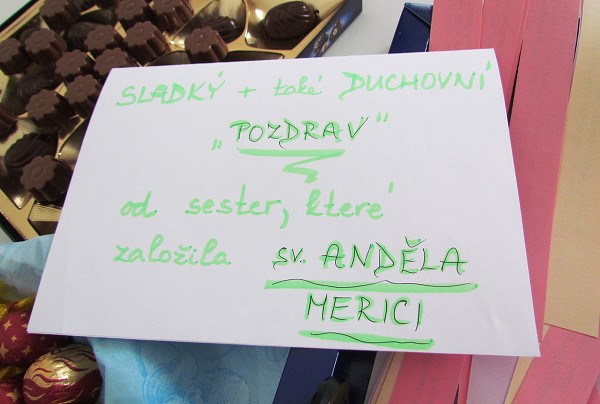 SLADKÝ + také DUCHOVNÍ
„POZDRAV"
od sester, které
založila sv. ANDĚLA
MERICI